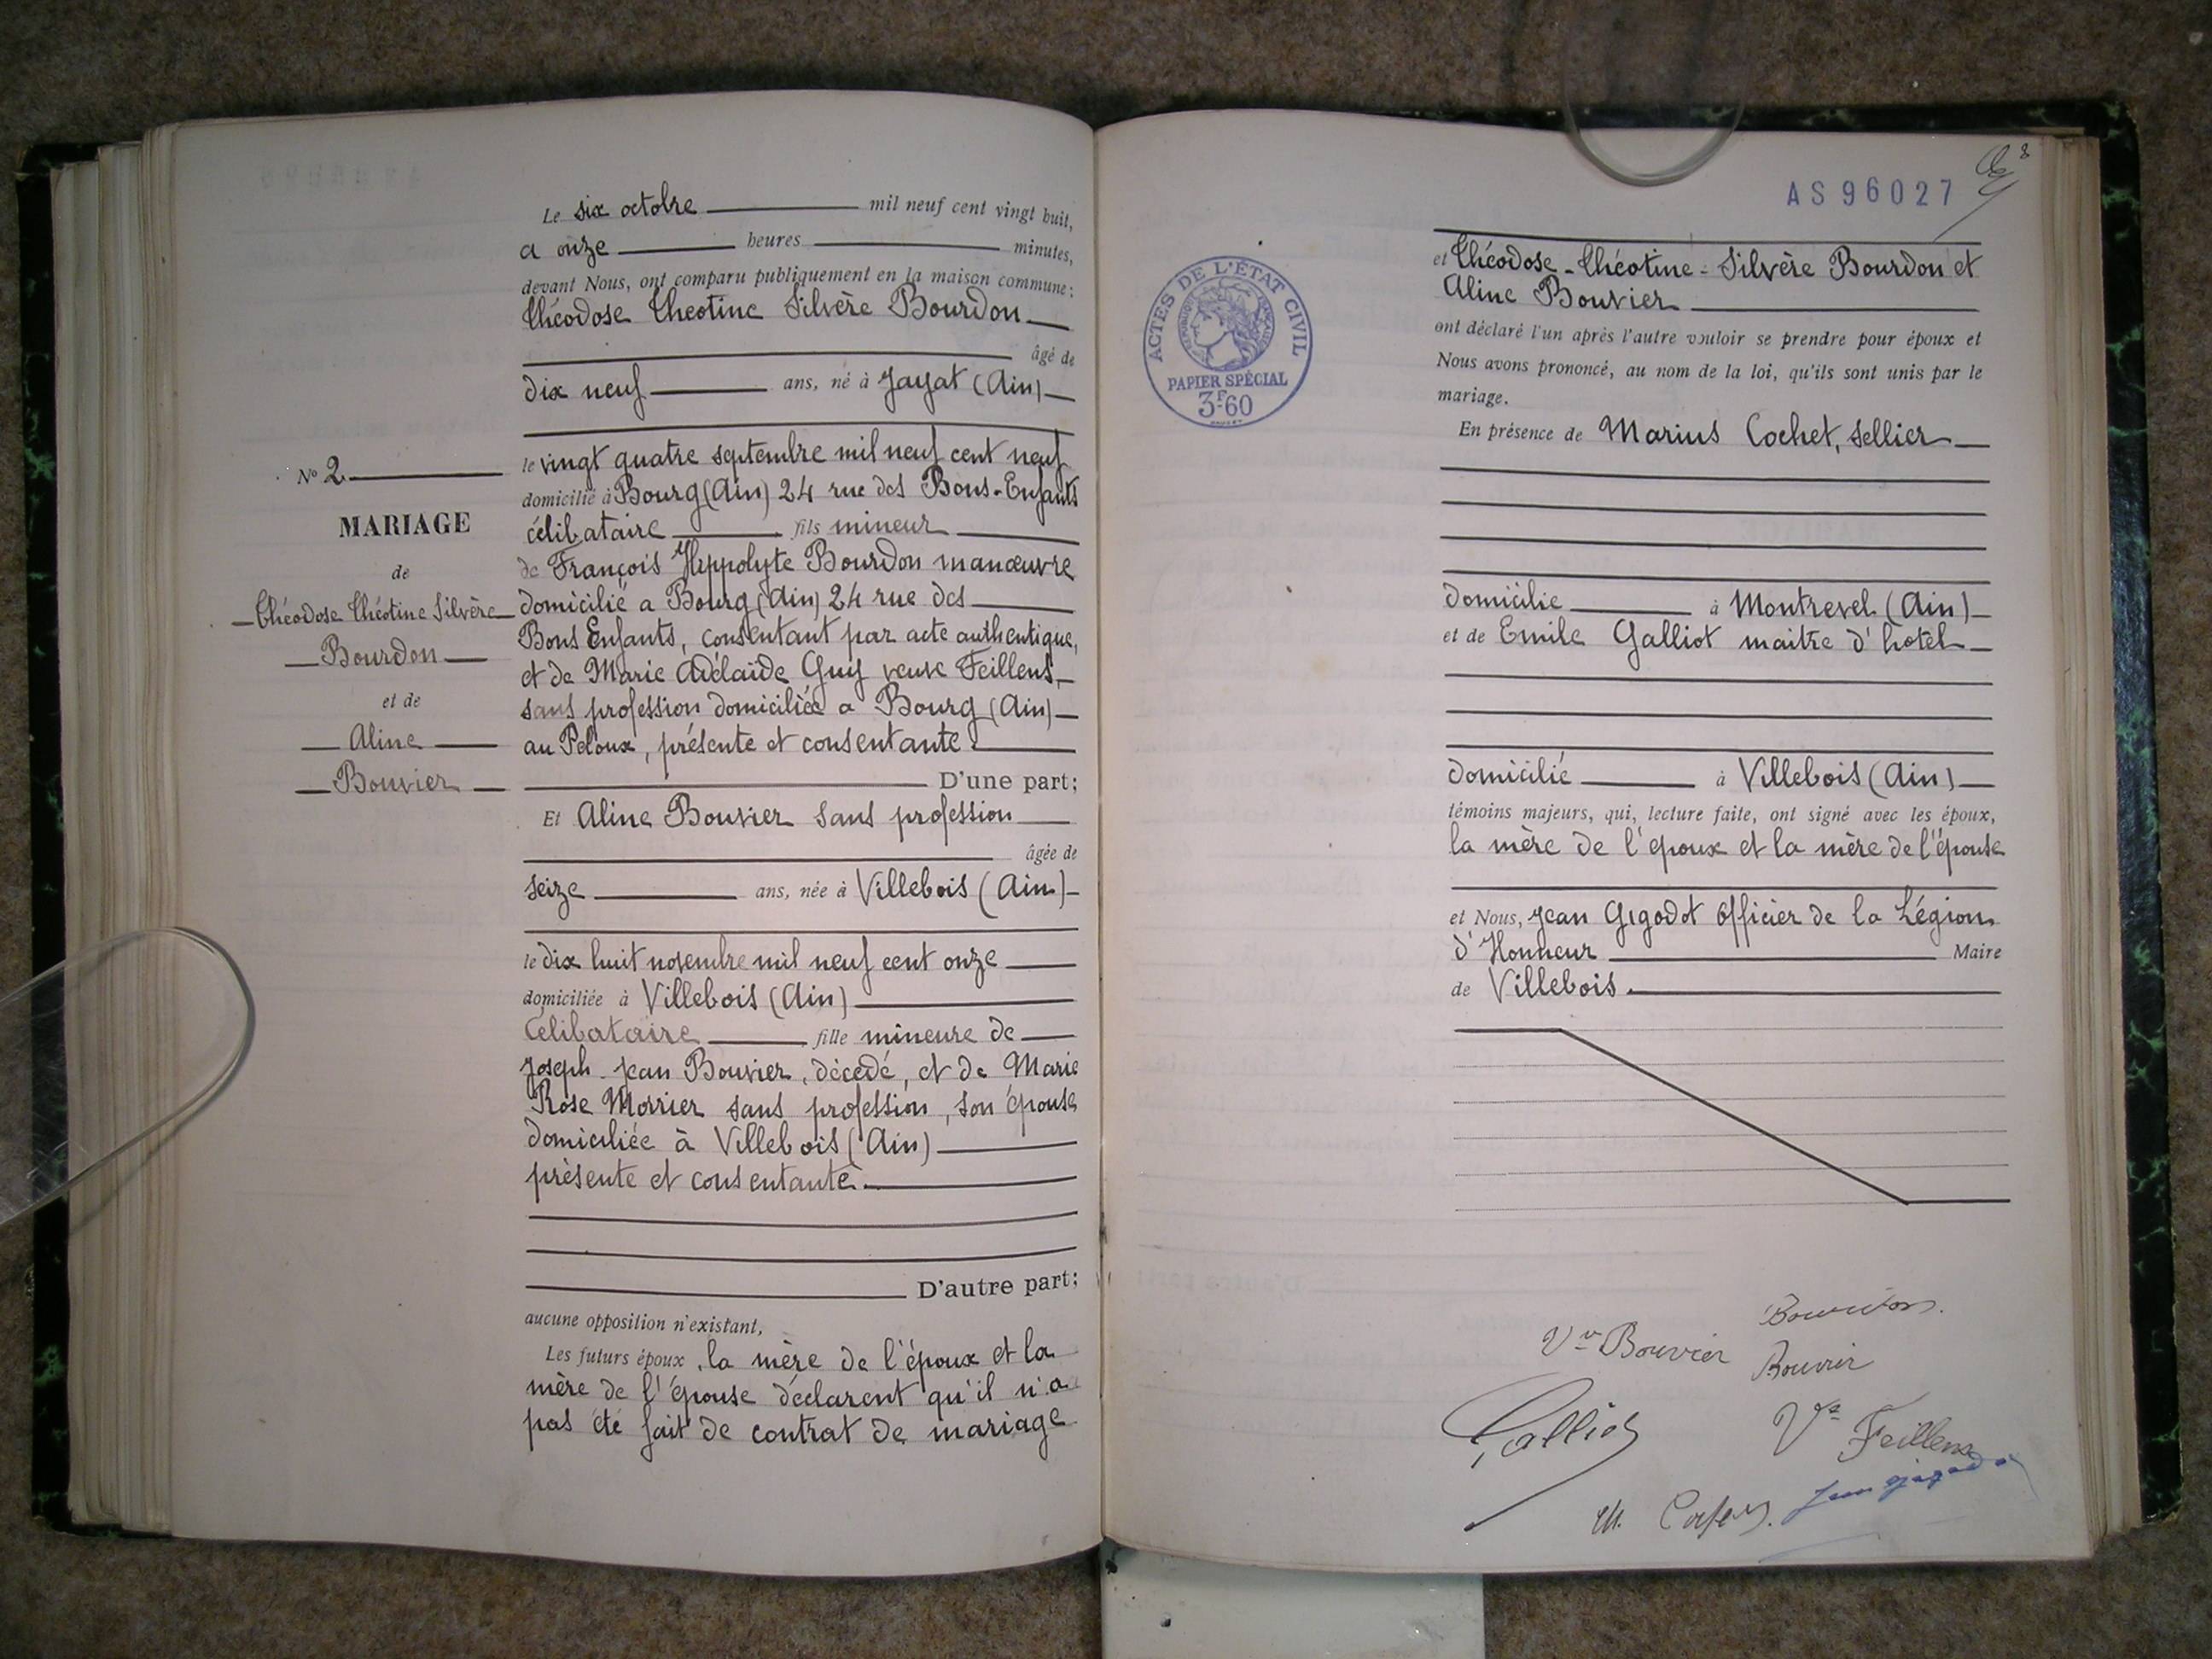 Le six octobre mil neuf cent vingt huit,
a onze heures minutes,
devant Nous, ont comparu publiquement en la maison commune :
Théodose Theotine Silvère Bourdon
âgé de
dix neuf ans, né à Jayat (Ain)
le vingt quatre septembre mil neuf cent neuf
domicilié à Bourg (Ain) 24 rue des Bons-Enfants
célibataire fils mineur
de François Hippolyte Bourdon manœuvre
domicilié a Bourg (Ain) 24 rue des
Bons Enfants, consentant par acte authentique,
et de Marie Adélaïde Guy veuve Feillens,
sans profession domiciliée a Bourg (Ain)
au Peloux, présente et consentante.
D'une part;
Et Aline Bouvier sans profession
âgée de
seize ans, née à Villebois (Ain)
le dix huit novembre mil neuf cent onze
domiciliée à Villebois (Ain)
Célibataire fille mineure de
Joseph Jean Bouvier, décédé, et de Marie
Rose Morrier sans profession, son épouse
domiciliée à Villebois (Ain)
présente et consentante
D'autre part;
aucune opposition n'existant,
Les futurs époux, la mère de l'époux et la
mère de l'épouse déclarent qu'il n'a
pas été fait de contrat de mariage
No 2
MARIAGE
de
Théodose Théotine Silvère
Bourdon
et de
Aline
Bouvier
AS96027
ACTES DE L'ÉTAT CIVIL
PAPIER SPÉCIAL
3F60
et Théodose-Théotine-Silvère Bourdon et
Aline Bouvier
ont déclaré l'un après l'autre vouloir se prendre pour époux et
Nous avons prononcé, au nom de la loi, qu'ils sont unis par le
mariage.
En présence de Marius Cochet, sellier
domicilie à Montrevel (Ain)
et de Emile Galliot maitre d'hotel
domicilié à Villebois (Ain)
témoins majeurs, qui, lecture faite, ont signé avec les époux,
la mère de l'époux et la mère de l'épouse
et Nous, Jean Gigodot Officier de la Légion
d'Honneur Maire
de Villebois.
Bourdon.
Vve Bouvier
Bouvier
Galliot
Vve Feillens
Jean Gigodot
M.